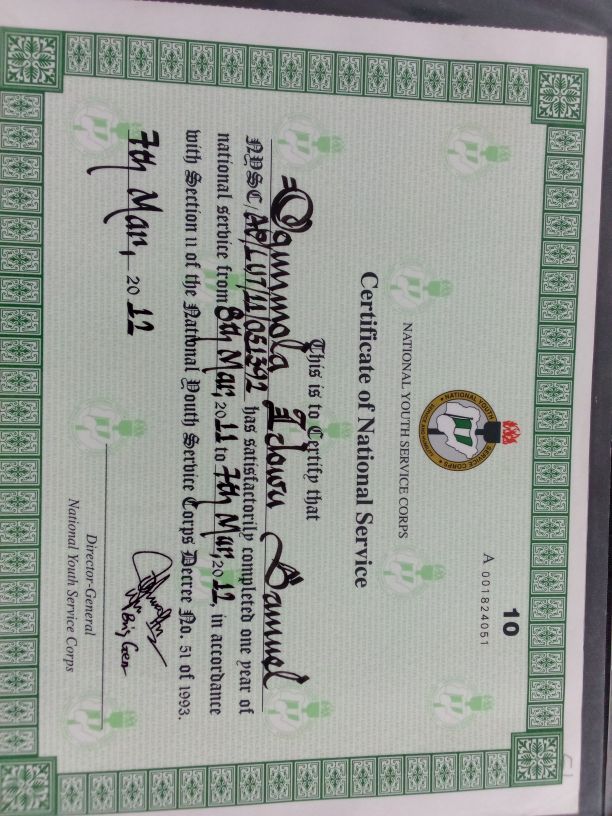 10
A 001824051
NATIONAL YOUTH SERVICE CORPS
Certificate of National Service
This is to Certify that
Ogunmola Idowu Samuel
NYSC/AB/LUT/11/051392 has satisfactorily completed one year of
national service from 8th Mar, 2011 to 7th Mar, 2012, in accordance
with Section 11 of the National Youth Service Corps Decree No. 51 of 1993.
7th Mar, 2012
Brig Gen
Director-General
National Youth Service Corps